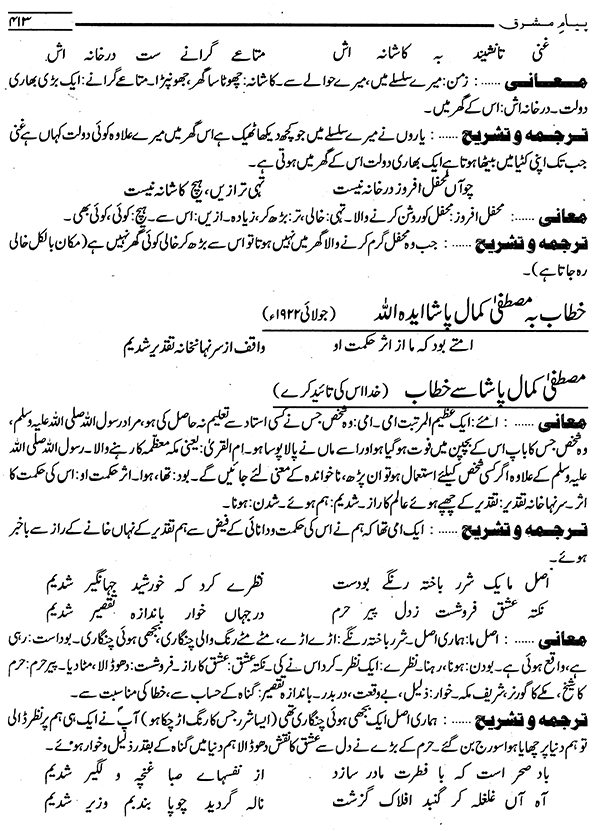 پیامِ مشرق ۴۱۳
غنی تانشیند بہ کاشانہ اش متاعے گرانے ست درخانہ اش
معانی ...... : زمن: میرے سلسلے میں، میرے حوالے سے۔ کاشانہ: چھوٹا سا گھر، جھونپڑا۔ متاعے گرانے: ایک بڑی بھاری
دولت۔ درخانہ اش: اس کے گھر میں۔
ترجمہ و تشریح ...... : یاروں نے میرے سلسلے میں جو کچھ دیکھا ٹھیک ہے اس گھر میں میرے علاوہ کوئی دولت کہاں ہے غنی
جب تک اپنی کٹیا میں بیٹھا ہوتا ہے ایک بھاری دولت اس کے گھر میں ہوتی ہے۔
چوآں محفل افروز درخانہ نیست تہی ترازیں، ہیچ کاشانہ نیست
معانی ...... : محفل افروز: محفل کو روشن کرنے والا۔ تہی: خالی، تر: بڑھ کر، زیادہ۔ ازیں: اس سے۔ ہیچ: کوئی، کوئی بھی۔
ترجمہ و تشریح ...... : جب وہ محفل گرم کرنے والا گھر میں نہیں ہوتا تو اس سے بڑھ کر خالی کوئی گھر نہیں ہے (مکان بالکل خالی
رہ جاتا ہے)۔
خطاب بہ مصطفیٰ کمال پاشا ایدہ اللہ (جولائی ۱۹۲۲ء)
امئے بود کہ ما از اثر حکمت او واقف از سرنہانخانہ تقدیر شدیم
مصطفیٰ کمال پاشا سے خطاب (خدا اس کی تائید کرے)
معانی ...... : امئے: ایک عظیم المرتبت امی۔ امی: وہ شخص جس نے کسی استاد سے تعلیم نہ حاصل کی ہو، مراد رسول اللہ صلی اللہ علیہ وسلم،
وہ شخص جس کا باپ اس کے بچپن میں فوت ہو گیا ہو اور اسے ماں نے پالا پوسا ہو۔ ام القریٰ: یعنی مکہ معظمہ کا رہنے والا۔ رسول اللہ صلی اللہ
علیہ وسلم کے علاوہ اگر کسی شخص کیلئے استعمال ہو تو ان پڑھ، ناخواندہ کے معنی لئے جائیں گے۔ بود: تھا، ہوا۔ اثر حکمت او: اس کی حکمت کا
اثر۔ سرنہا خانہ تقدیر: تقدیر کے چھپے ہوئے عالم کا راز۔ شدیم: ہم ہوئے۔ شدن: ہونا۔
ترجمہ و تشریح ...... : ایک امی تھا کہ ہم نے اس کی حکمت و دانائی کے فیض سے ہم تقدیر کے نہاں خانے کے راز سے باخبر
ہوئے۔
اصل مایک شرر باختہ رنگے بودست نظرے کرد کہ خورشید جہانگیر شدیم
نکتہ عشق فروشست زدل پیر حرم در جہاں خوار باندازہ تقصیر شدیم
معانی ...... : اصل ما: ہماری اصل۔ شرر باختہ رنگے: اڑے اڑے، مٹے مٹے رنگ والی چنگاری، بجھی ہوئی چنگاری۔ بوداست: رہی
ہے، واقع ہوئی ہے۔ بودن: ہونا، رہنا۔ نظرے: ایک نظر۔ کرد اس نے کی۔ نکتہ عشق: عشق کا راز۔ فروشست: دھو ڈالا، مٹا دیا۔ پیر حرم: حرم
کا شیخ، مکے کا گورنر، شریف مکہ۔ خوار: ذلیل، بے وقعت، در بدر۔ باندازہ تقصیر: گناہ کے حساب سے، خطا کی مناسبت سے۔
ترجمہ و تشریح ...... : ہماری اصل ایک بجھی ہوئی چنگاری تھی (ایسا شرر جس کا رنگ اڑ چکا ہو) آپؐ نے ایک ہی ہم پر نظر ڈالی
تو ہم دنیا پر چھایا ہوا سورج بن گئے۔ حرم کے بڑے نے دل سے عشق کا نقش دھو ڈالا ہم دنیا میں گناہ کے بقدر ذلیل و خوار ہوئے۔
باد صحر است کہ با فطرت مادر سازد از نفسہائے صبا غنچہ و لگیر شدیم
آہ آں غلغلہ کز گنبد افلاک گزشت نالہ گردید چوپا بندبم و زیر شدیم